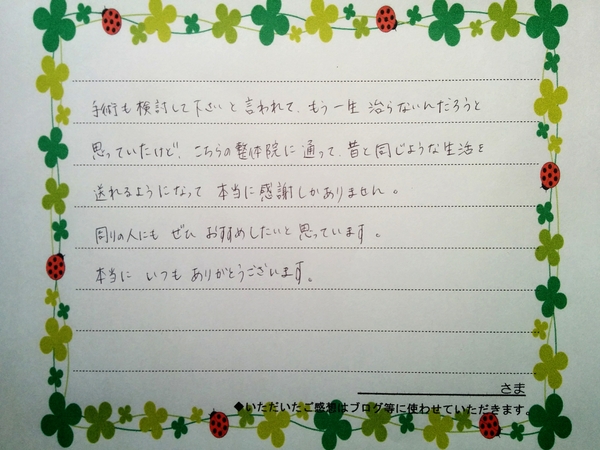 手術も検討して下さいと言われて、もう一生 治らないんだろうと
思っていたけど、こちらの整体院に通って、昔と同じような生活を
送れるようになって 本当に感謝しかありません。
周りの人にも ぜひ おすすめしたいと思っています。
本当に いつも ありがとうございます。
さま
◆いただいたご感想はブログ等に使わせていただきます。